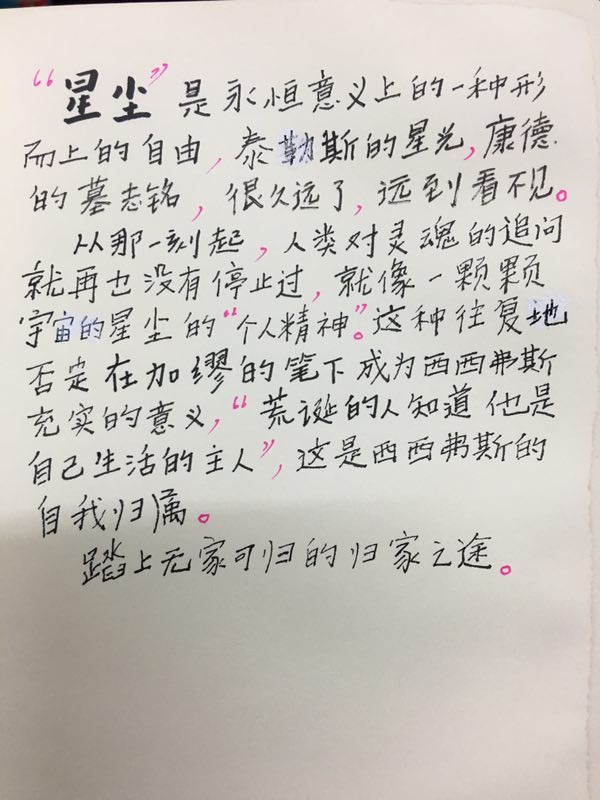 “星尘”是永恒意义上的一种形
而上的自由，泰勒斯的星光，康德
的墓志铭，很久远了，远到看不见。
从那一刻起，人类对灵魂的追问
就再也没有停止过，就像一颗颗
宇宙的星尘的“个人精神”。这种往复地
否定在加缪的笔下成为西西弗斯
充实的意义，“荒诞的人知道他是
自己生活的主人”，这是西西弗斯的
自我归属。
踏上无家可归的归家之途。